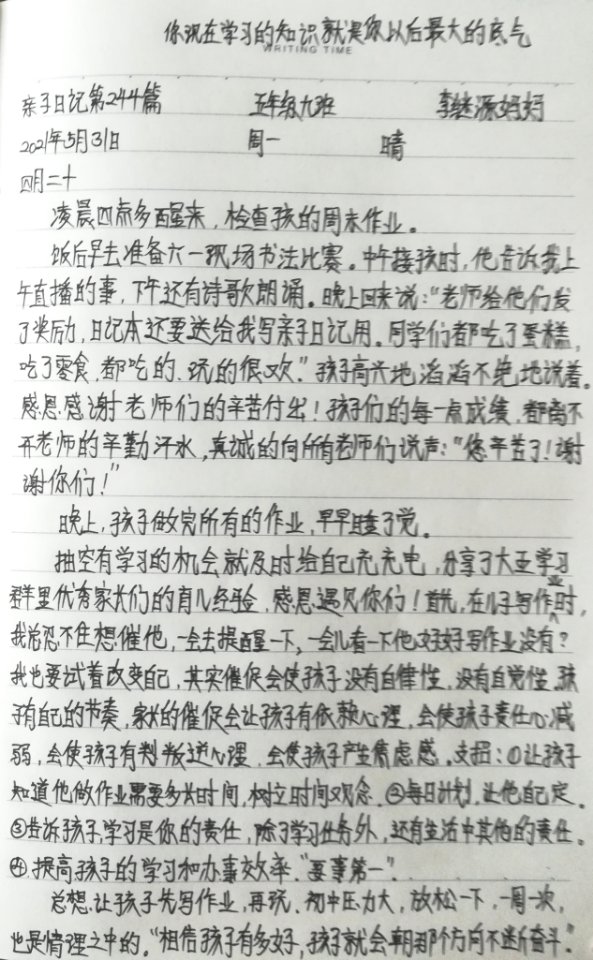 你现在学习的知识就是你以后最大的底气
WRITING TIME
亲子日记第244篇 五年级九班 李继源妈妈
2021年5月31日 周一 晴
四月二十
凌晨四点多醒来，检查孩的周末作业。
饭后早去准备六一现场书法比赛。中午接孩时，他告诉我上
午直播的事，下午还有诗歌朗诵。晚上回来说：“老师给他们发
了奖励，日记本还要送给我写亲子日记用。同学们都吃了蛋糕，
吃了零食，都吃的、玩的很欢。”孩子高兴地滔滔不绝地说着。
感恩感谢老师们的辛苦付出！孩子们的每一点成绩，都离不
开老师的辛勤汗水，真诚的向所有老师们说声：“您辛苦了！谢
谢你们！”
晚上，孩子做完所有的作业，早早睡了觉。
抽空有学习的机会就及时给自己充充电，分享了大亚学习
群里优秀家长们的育儿经验，感恩遇见你们！首先，在儿子写作业时，
我总忍不住想催他，一会去提醒一下，一会儿看一下他好好写作业没有？
我也要试着改变自己，其实催促会使孩子没有自律性，没有自觉性。孩
子有自己的节奏，家长的催促会让孩子有依赖心理，会使孩子责任心减
弱，会使孩子有判叛逆心理，会使孩子产生焦虑感。支招：①让孩子
知道他做作业需要多长时间，树立时间观念。②每日计划，让他自己定。
③告诉孩子，学习是你的责任，除了学习任务外，还有生活中其他的责任。
④提高孩子的学习和办事效率。“要事第一”。
总想让孩子先写作业，再玩。初中压力大，放松一下，一周一次，
也是情理之中的。“相信孩子有多好，孩子就会朝那个方向不断奋斗。”